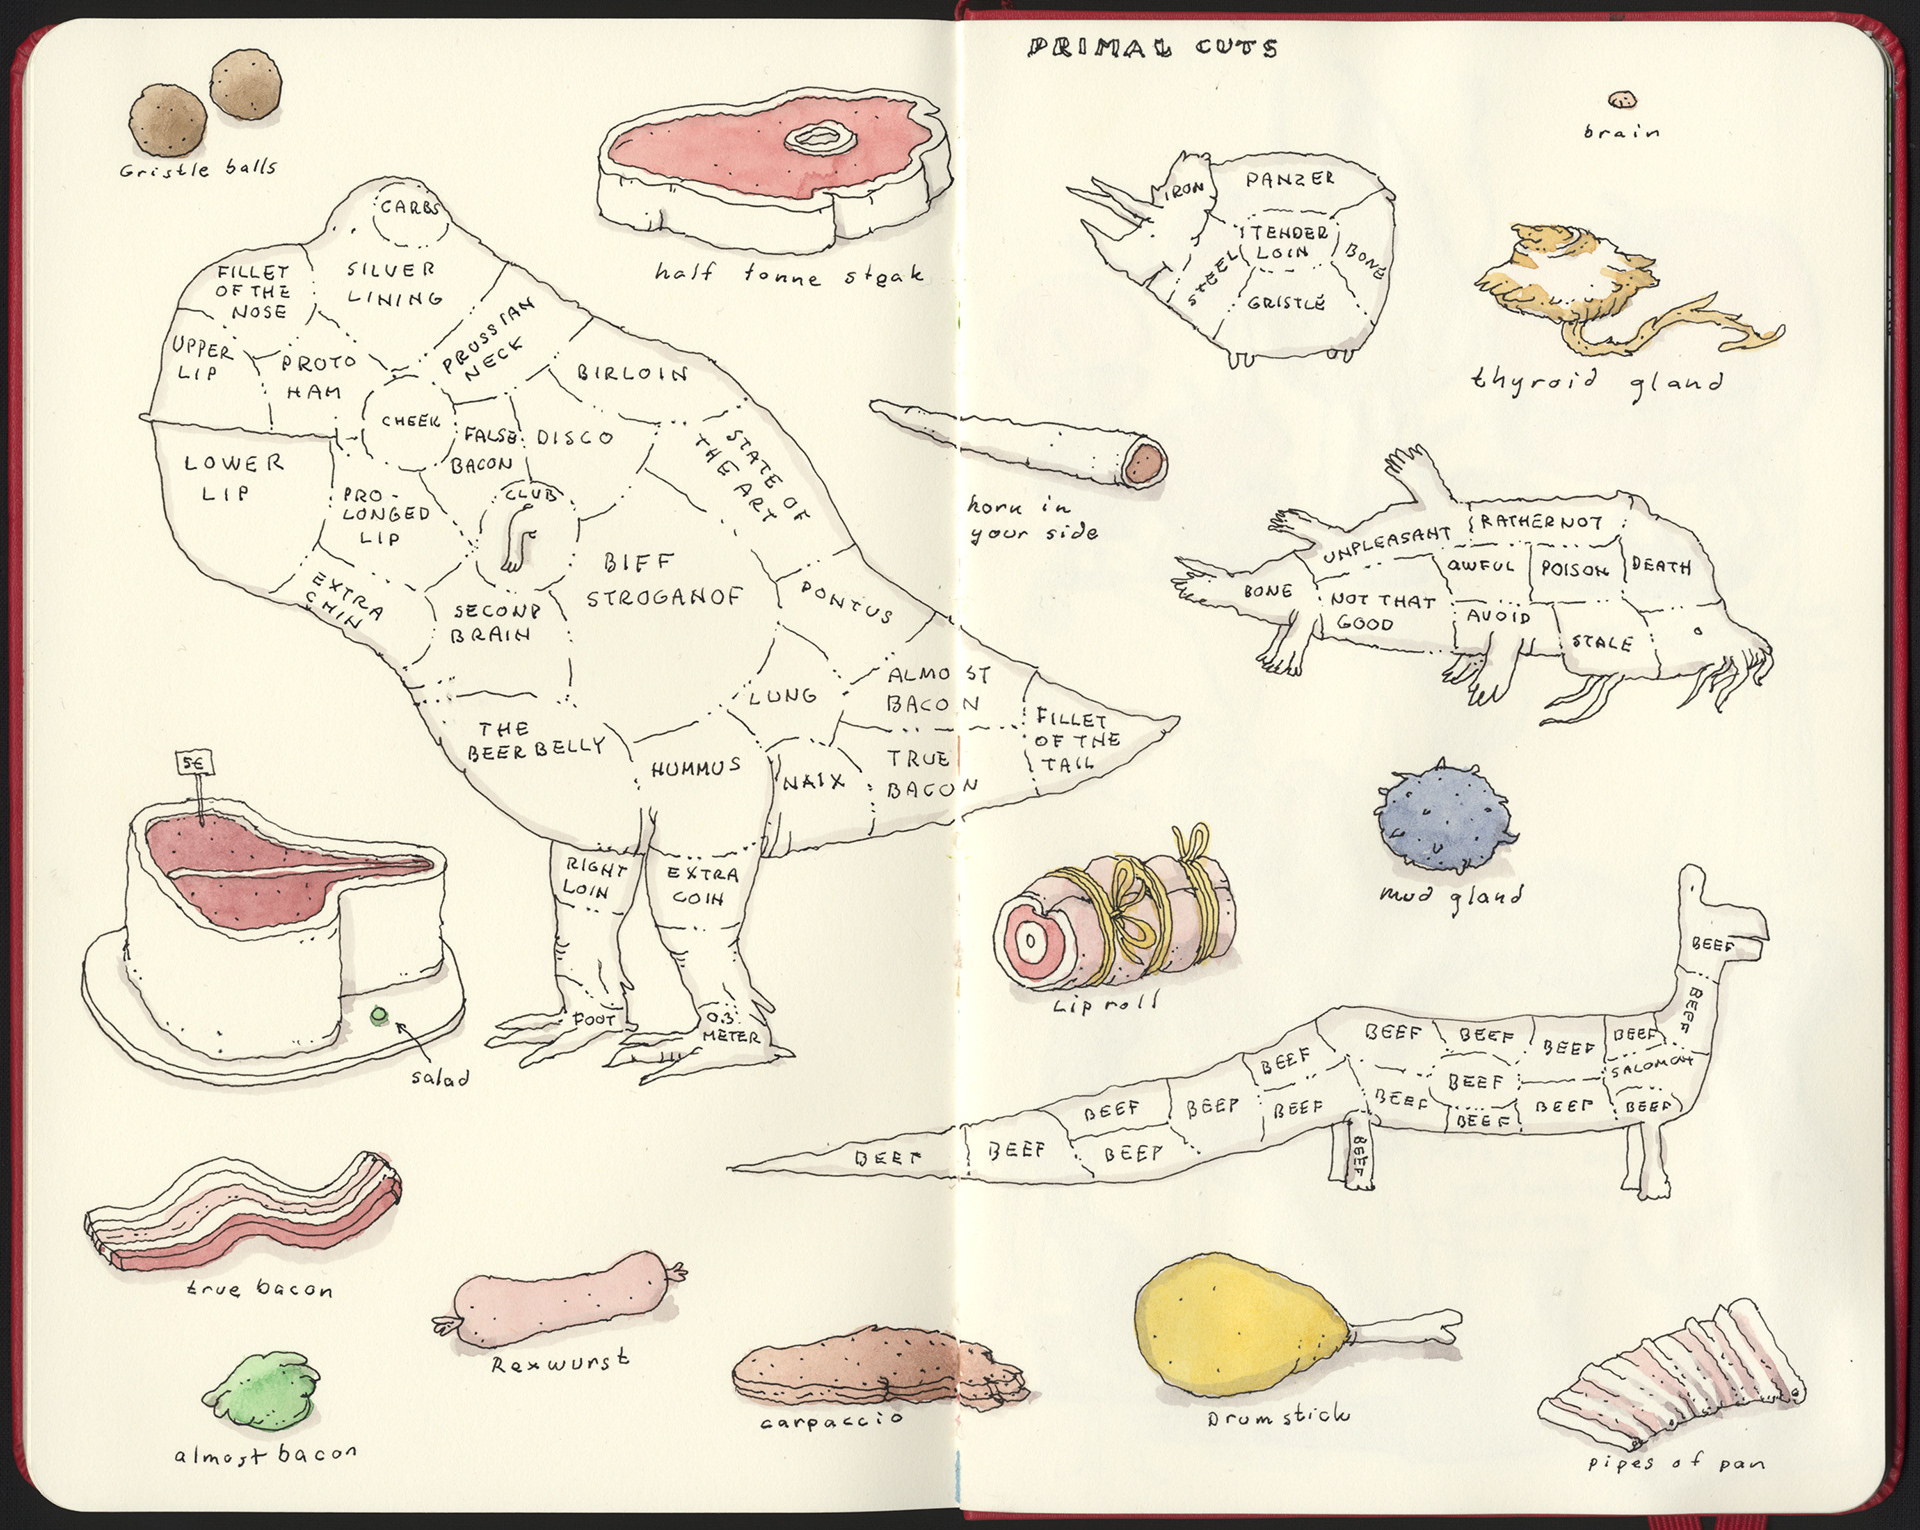 PRIMAL CUTS
Gristle balls
half tonne steak
brain
CARBS
FILLET
OF THE
NOSE
SILVER
LINING
PRUSSIAN
NECK
UPPER
LIP
PROTO
HAM
BIRLOIN
CHEEK
FALSE
BACON
DISCO
STATE OF
THE ART
LOWER
LIP
PRO-
LONGED
LIP
CLUB
EXTRA
CHIN
SECOND
BRAIN
BIFF
STROGANOF
PONTUS
THE
BEER BELLY
LUNG
ALMOST
BACON
HUMMUS
NAIX
TRUE
BACON
FILLET
OF THE
TAIL
RIGHT
LOIN
EXTRA
COIN
FOOT
0.3
METER
IRON
PANZER
TENDER
LOIN
STEEL
BONE
GRISTLE
thyroid gland
horn in
your side
UNPLEASANT
RATHER NOT
BONE
AWFUL
POISON
DEATH
NOT THAT
GOOD
AVOID
STALE
5€
salad
mud gland
Lip roll
BEEF
BEEF
BEEF
BEEF
BEEF
BEEF
BEEF
SALOMON
BEEF
BEEF
BEEF
BEEF
BEEF
BEEF
BEEF
BEEF
BEEF
BEEF
BEEF
BEEF
BEEF
true bacon
Rexwurst
almost bacon
carpaccio
Drumstick
pipes of pan